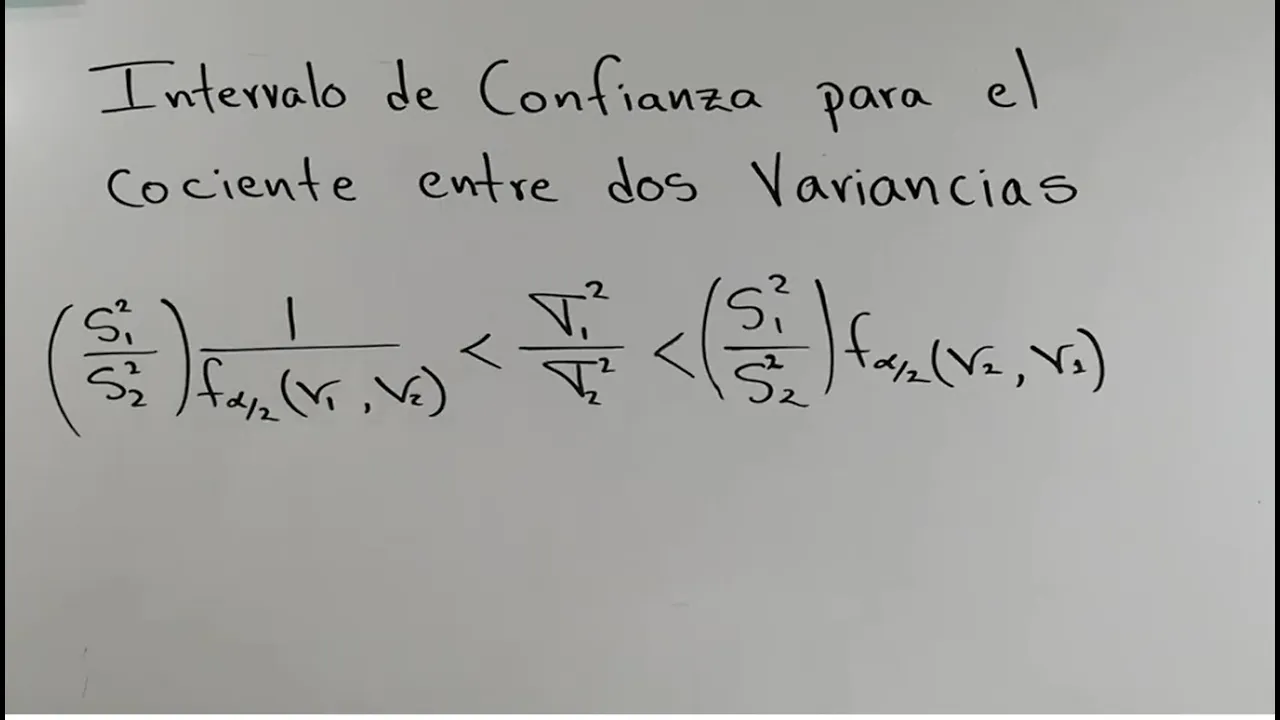 Intervalo de Confianza para el
Cociente entre dos Variancias
(S₁²/S₂²) 1/f_{α/2}(v₁, v₂) < σ₁²/σ₂² < (S₁²/S₂²) f_{α/2}(v₂, v₁)